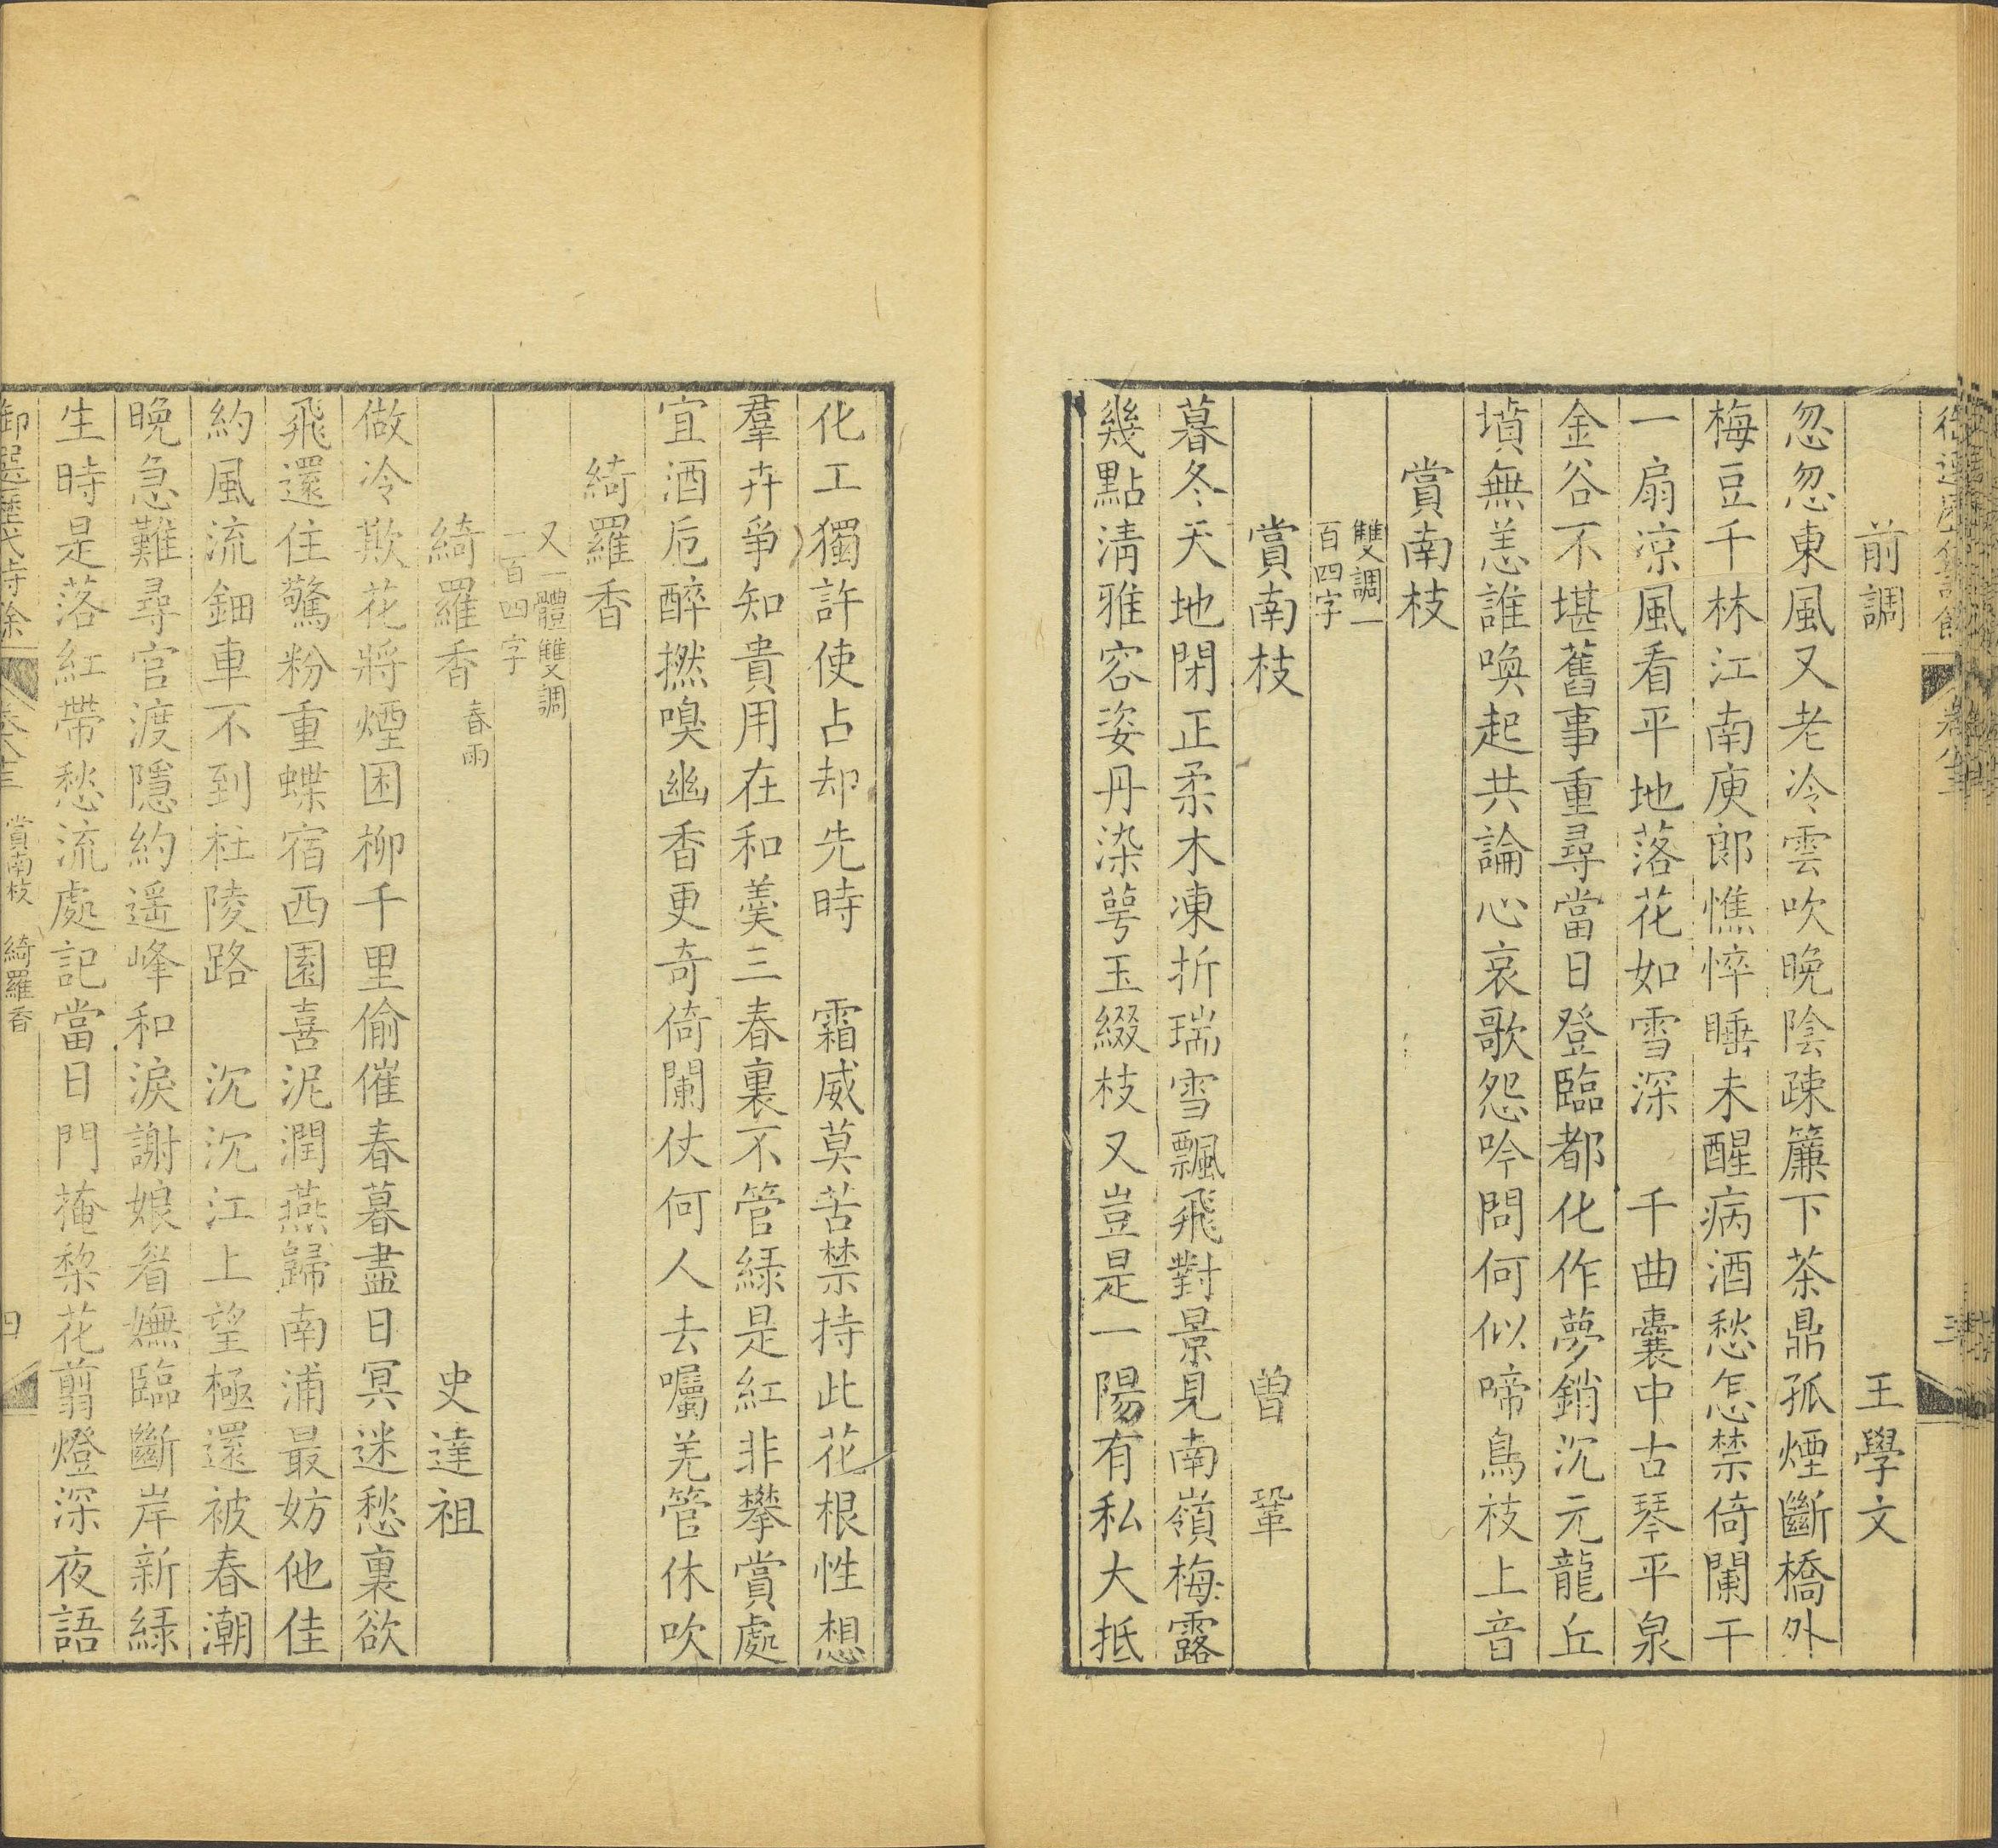 前調 王學文
忽忽東風又老冷雲吹晚陰疎簾下茶鼎孤煙斷橋外
梅豆千林江南庾郎憔悴睡未醒病酒愁怎禁倚闌干
一扇涼風看平地落花如雪深 千曲囊中古琴平泉
金谷不堪舊事重尋當日登臨都化作夢銷沉元龍丘
墳無恙誰喚起共論心哀歌怨吟問何似啼鳥枝上音
賞南枝
雙調一
百四字
賞南枝 曾鞏
暮冬天地閉正柔木凍折瑞雪飄飛對景見南嶺梅露
幾點淸雅容姿丹染萼玉綴枝又豈是一陽有私大抵
化工獨許使占却先時 霜威莫苦禁持此花根性想
羣卉爭知貴用在和羹三春裏不管緑是紅非攀賞處
宜酒卮醉撚嗅幽香更奇倚闌仗何人去囑羌管休吹
綺羅香
又一體雙調
一百四字
綺羅香 春雨 史達祖
做冷欺花將煙困柳千里偷催春暮盡日冥迷愁裏欲
飛還住驚粉重蝶宿西園喜泥潤燕歸南浦最妨他佳
約風流鈿車不到杜陵路 沉沉江上望極還被春潮
晚急難尋官渡隱約遥峰和淚謝娘眉嫵臨斷岸新緑
生時是落紅帶愁流處記當日門掩棃花翦燈深夜語
賞南枝 綺羅香 四